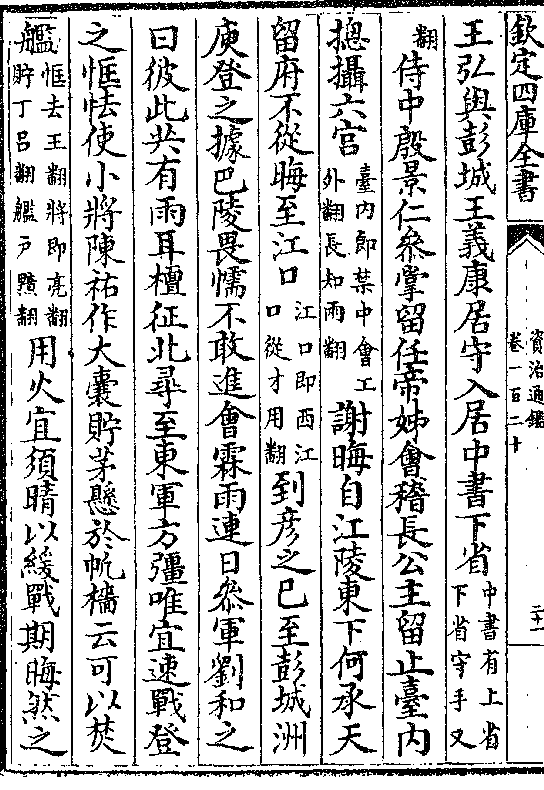 欽定四庫全書
資治通鑑
卷一百二十
二十一
王弘與彭城王義康居守入居中書下省中書有上省下省守手又
翻侍中殷景仁叅掌留任帝姊會稽長公主留止臺内
揔攝六宫臺内即禁中會工外翻長知雨翻謝晦自江陵東下何承天
留府不從晦至江口江口即西江口從才用翻到彦之已至彭城洲
庾登之據巴陵畏懦不敢進會霖雨連日叅軍劉和之
曰彼此共有雨耳檀征北尋至東軍方彊唯宜速戰登
之恇怯使小將陳祐作大囊貯茅懸於㠶檣云可以焚
艦恇去王翻將即亮翻貯丁吕翻艦戸黤翻用火宜須晴以緩戰期晦然之